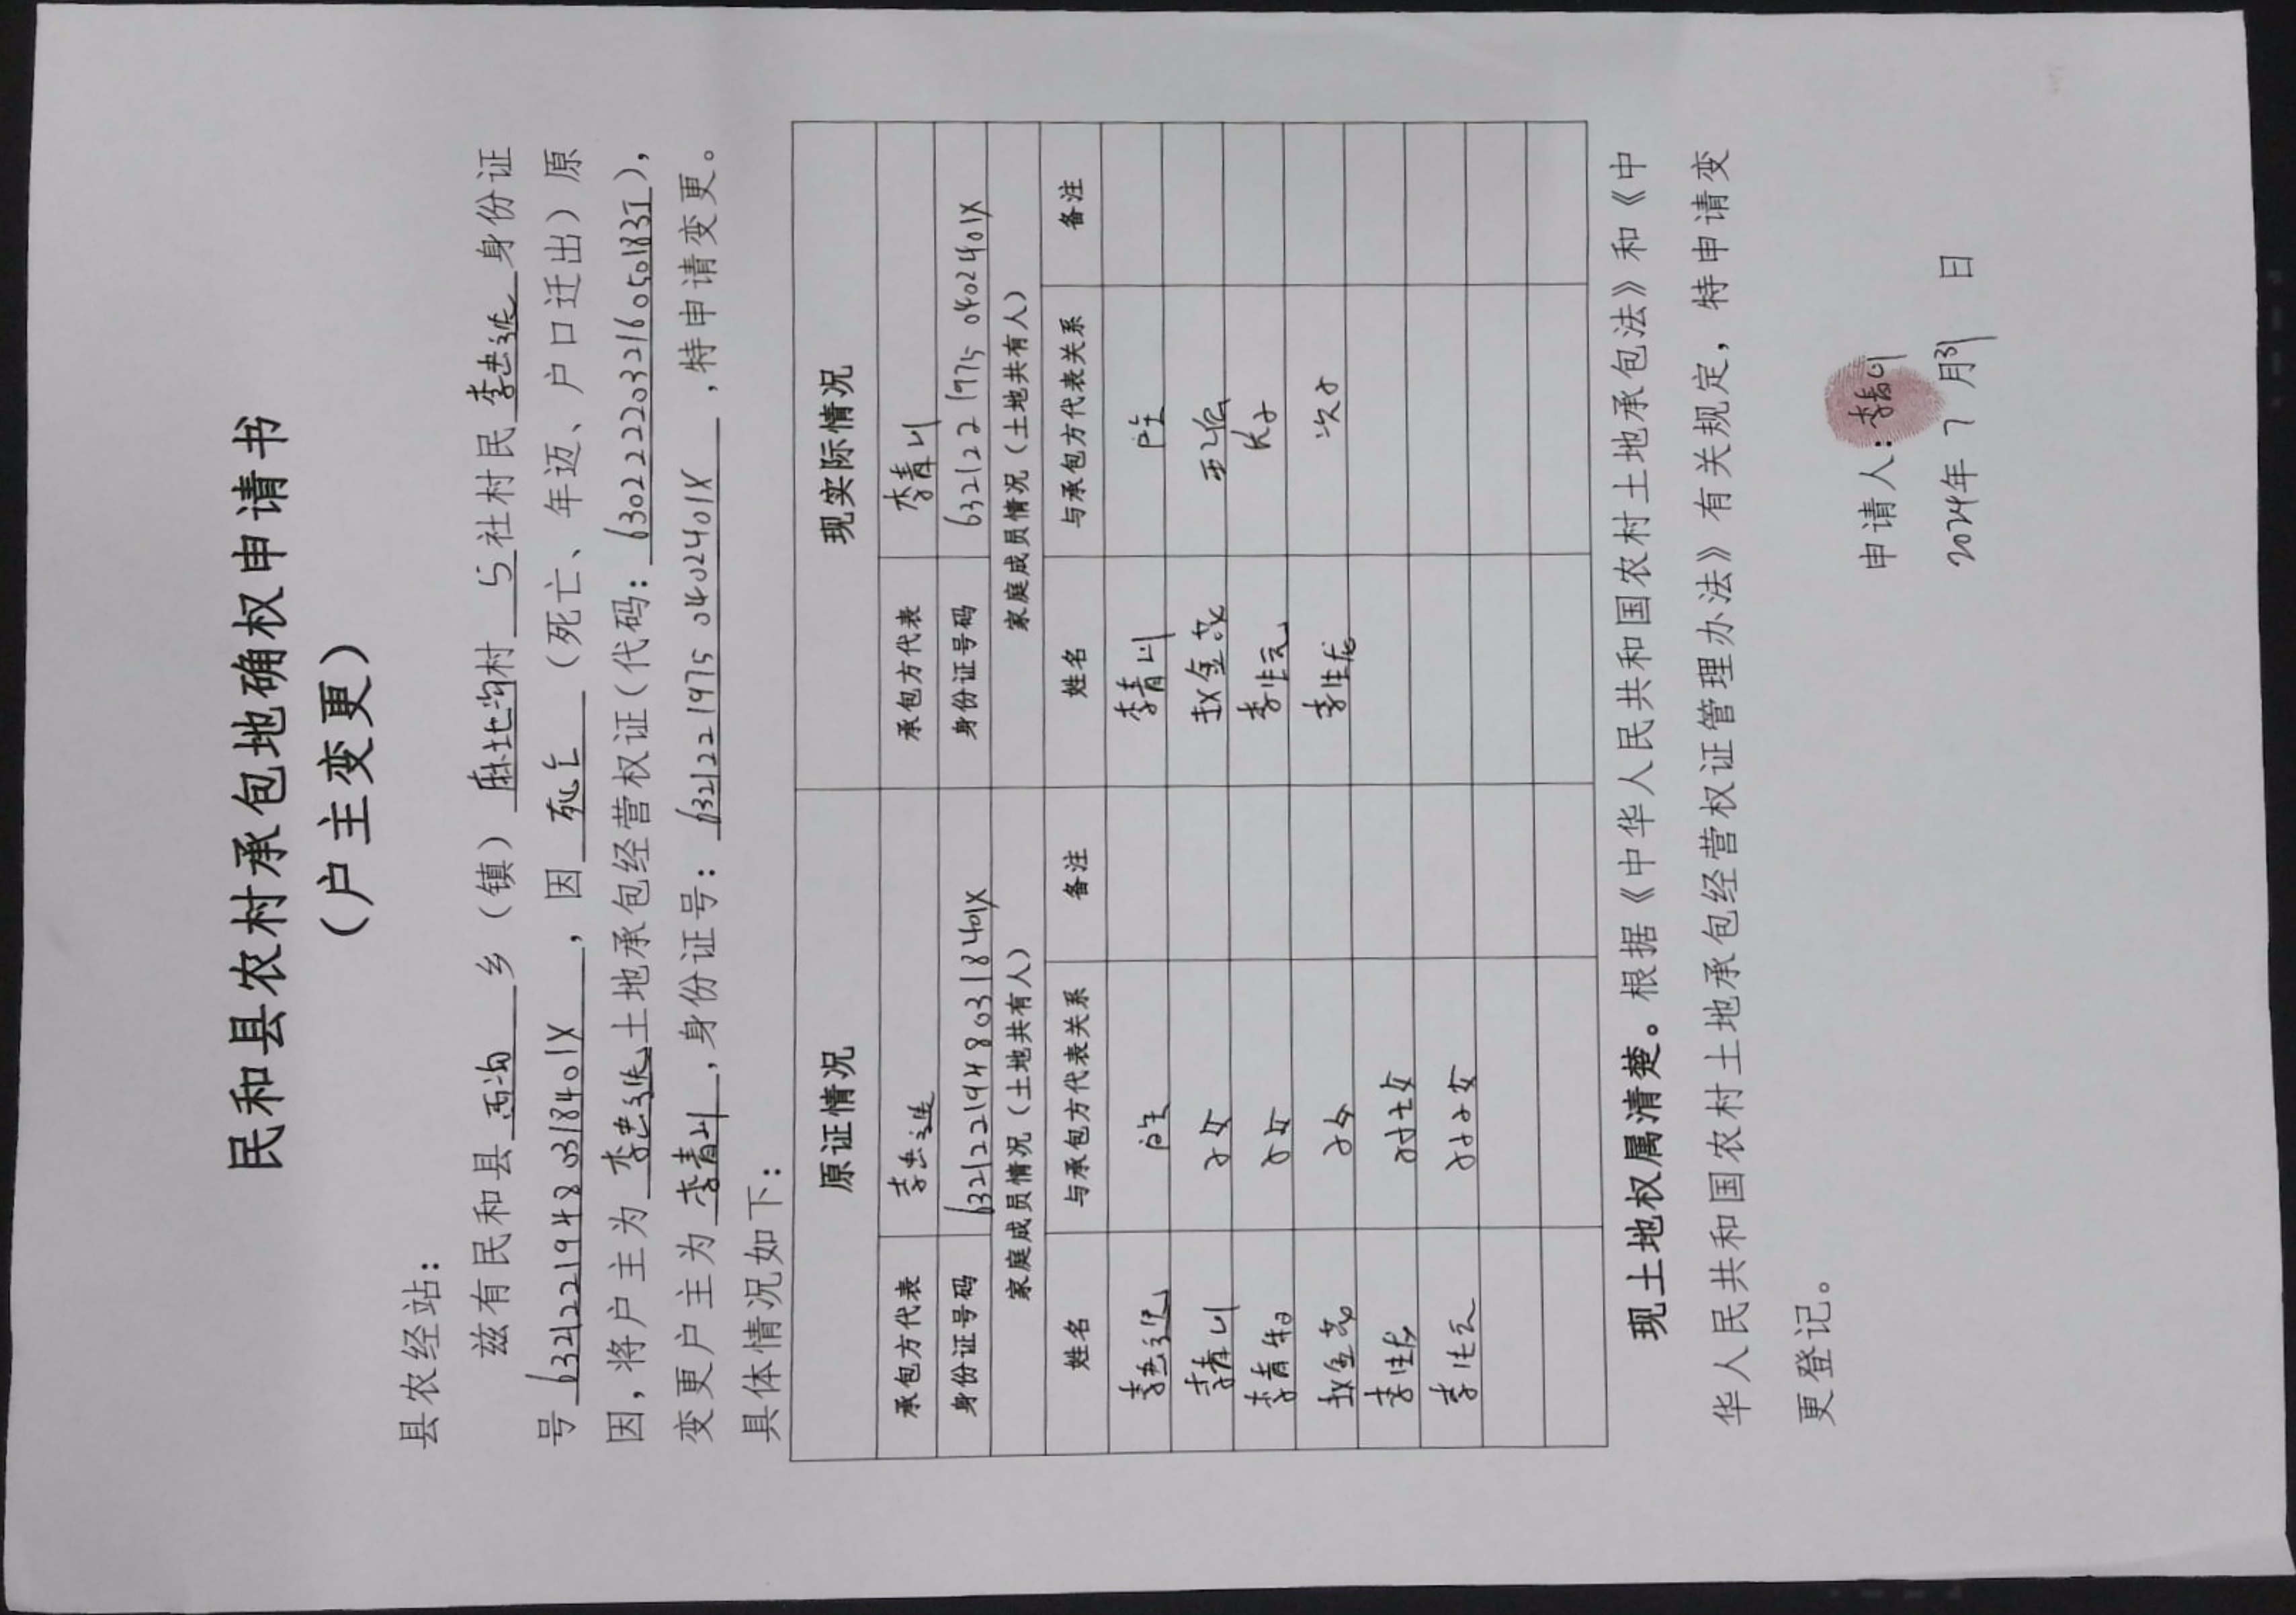 民和县农村承包地确权申请书
（户主变更）
县农经站：
兹有民和县 西沟 乡（镇） 麻地沟村 5 社村民 李 身份证
号 63212219480318401X ，因 死亡 （死亡、年迈、户口迁出）原
因，将户主为 李 土地承包经营权证（代码： ），
变更户主为 李青山 ，身份证号： 63212219750402401X ，特申请变更。
具体情况如下：
原证情况 现实际情况
承包方代表 李 承包方代表 李青山
身份证号码 63212219480318401X 身份证号码 63212219750402401X
家庭成员情况（土地共有人） 家庭成员情况（土地共有人）
姓名 与承包方代表关系 备注 姓名 与承包方代表关系 备注
李 户主 李青山 户主
李青山 子女 赵金 配偶
李青 子女 李生元 长子
赵金 子女 李生龙 次子
李生龙 孙子女
李生元 孙子女
现土地权属清楚。根据《中华人民共和国农村土地承包法》和《中
华人民共和国农村土地承包经营权证管理办法》有关规定，特申请变
更登记。
申请人：李青山
2024年 7 月31 日